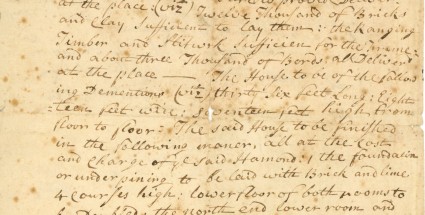 at the place (viz) Twelve Thousand of Bricks
and Clay Sufficien to lay them: the hanging
Timber and Sufficien for the
and about three Thousand of Bords all Deliverd
at the place — The House to be of the follow
ing Dementions (viz) thirty Six feet Long: Eigh
teen feet wide: feet high from
floor to floor: The said House to be finished
in the following maner, all at the Cost
and Charge of ye said Hamond: the foundation
or underpining to be laid with Brick and lime
4 Courses high: lower floor of both rooms to
the north end lower room and